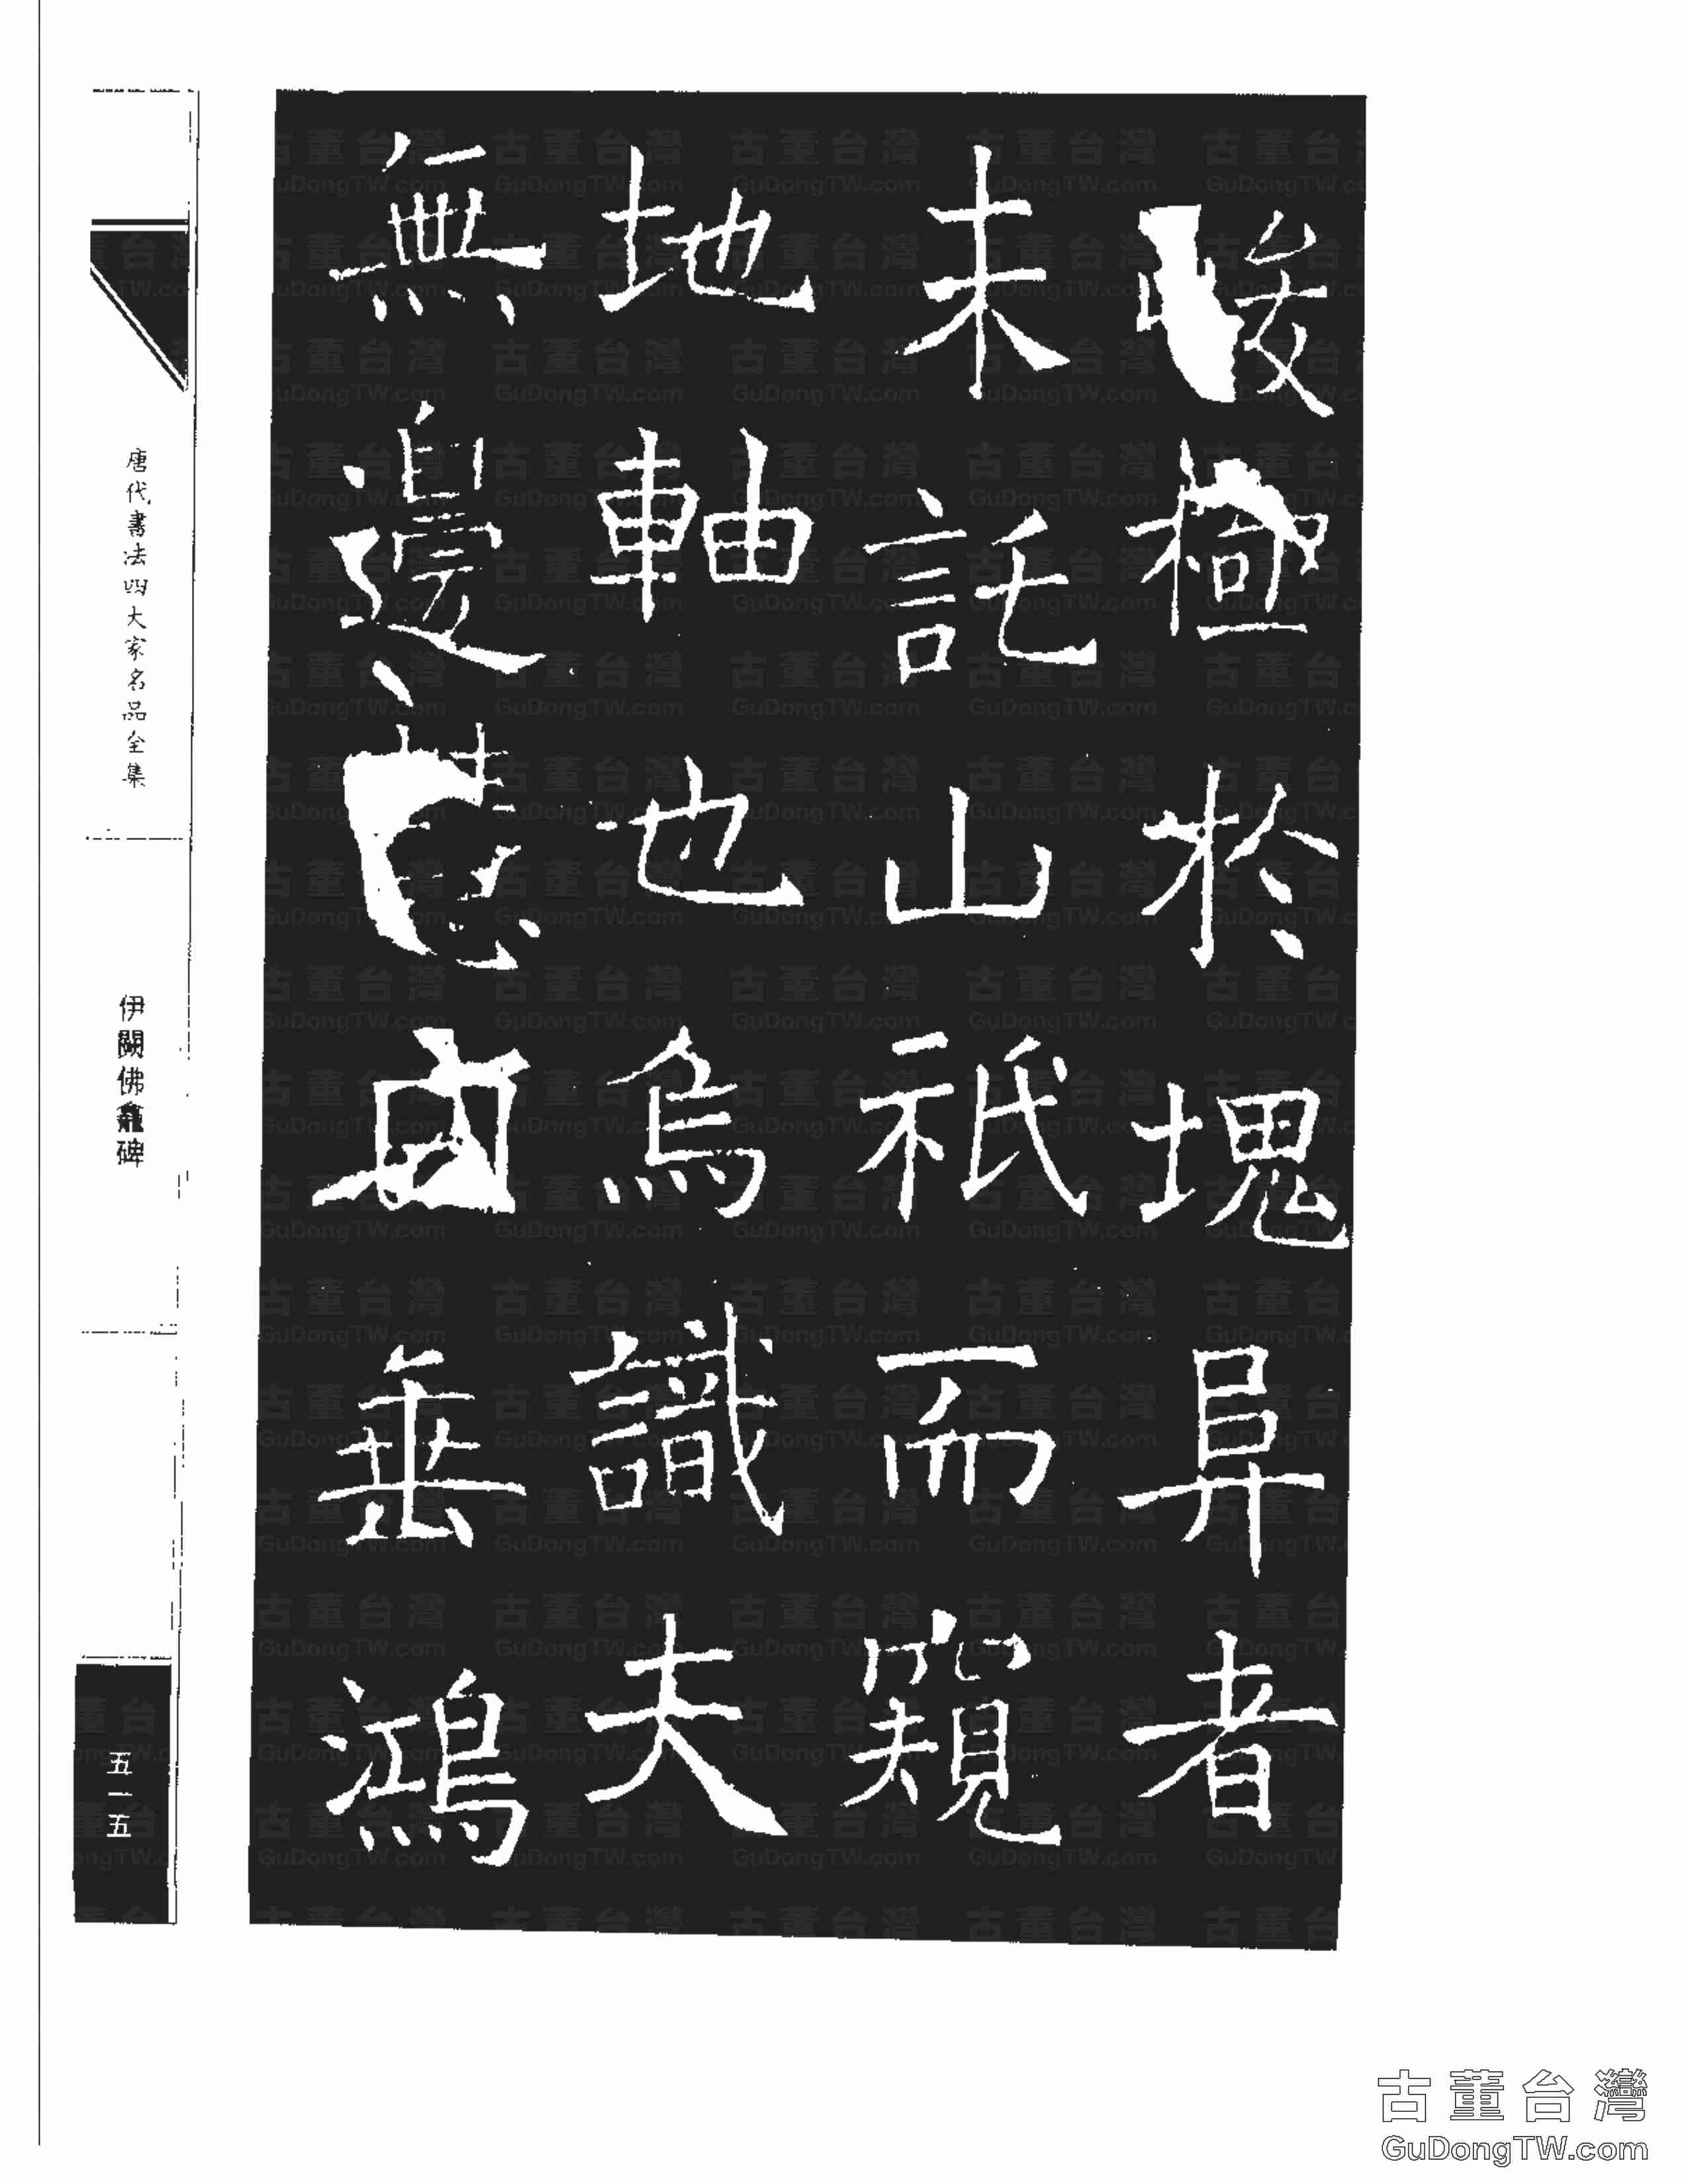 峻極於塊阜者
未託山祇而窺
地軸也烏識夫
無邊慧日垂鴻
唐代書法四大家名品全集
伊闕佛龕碑
五一五
古董台灣
GuDongTW.com